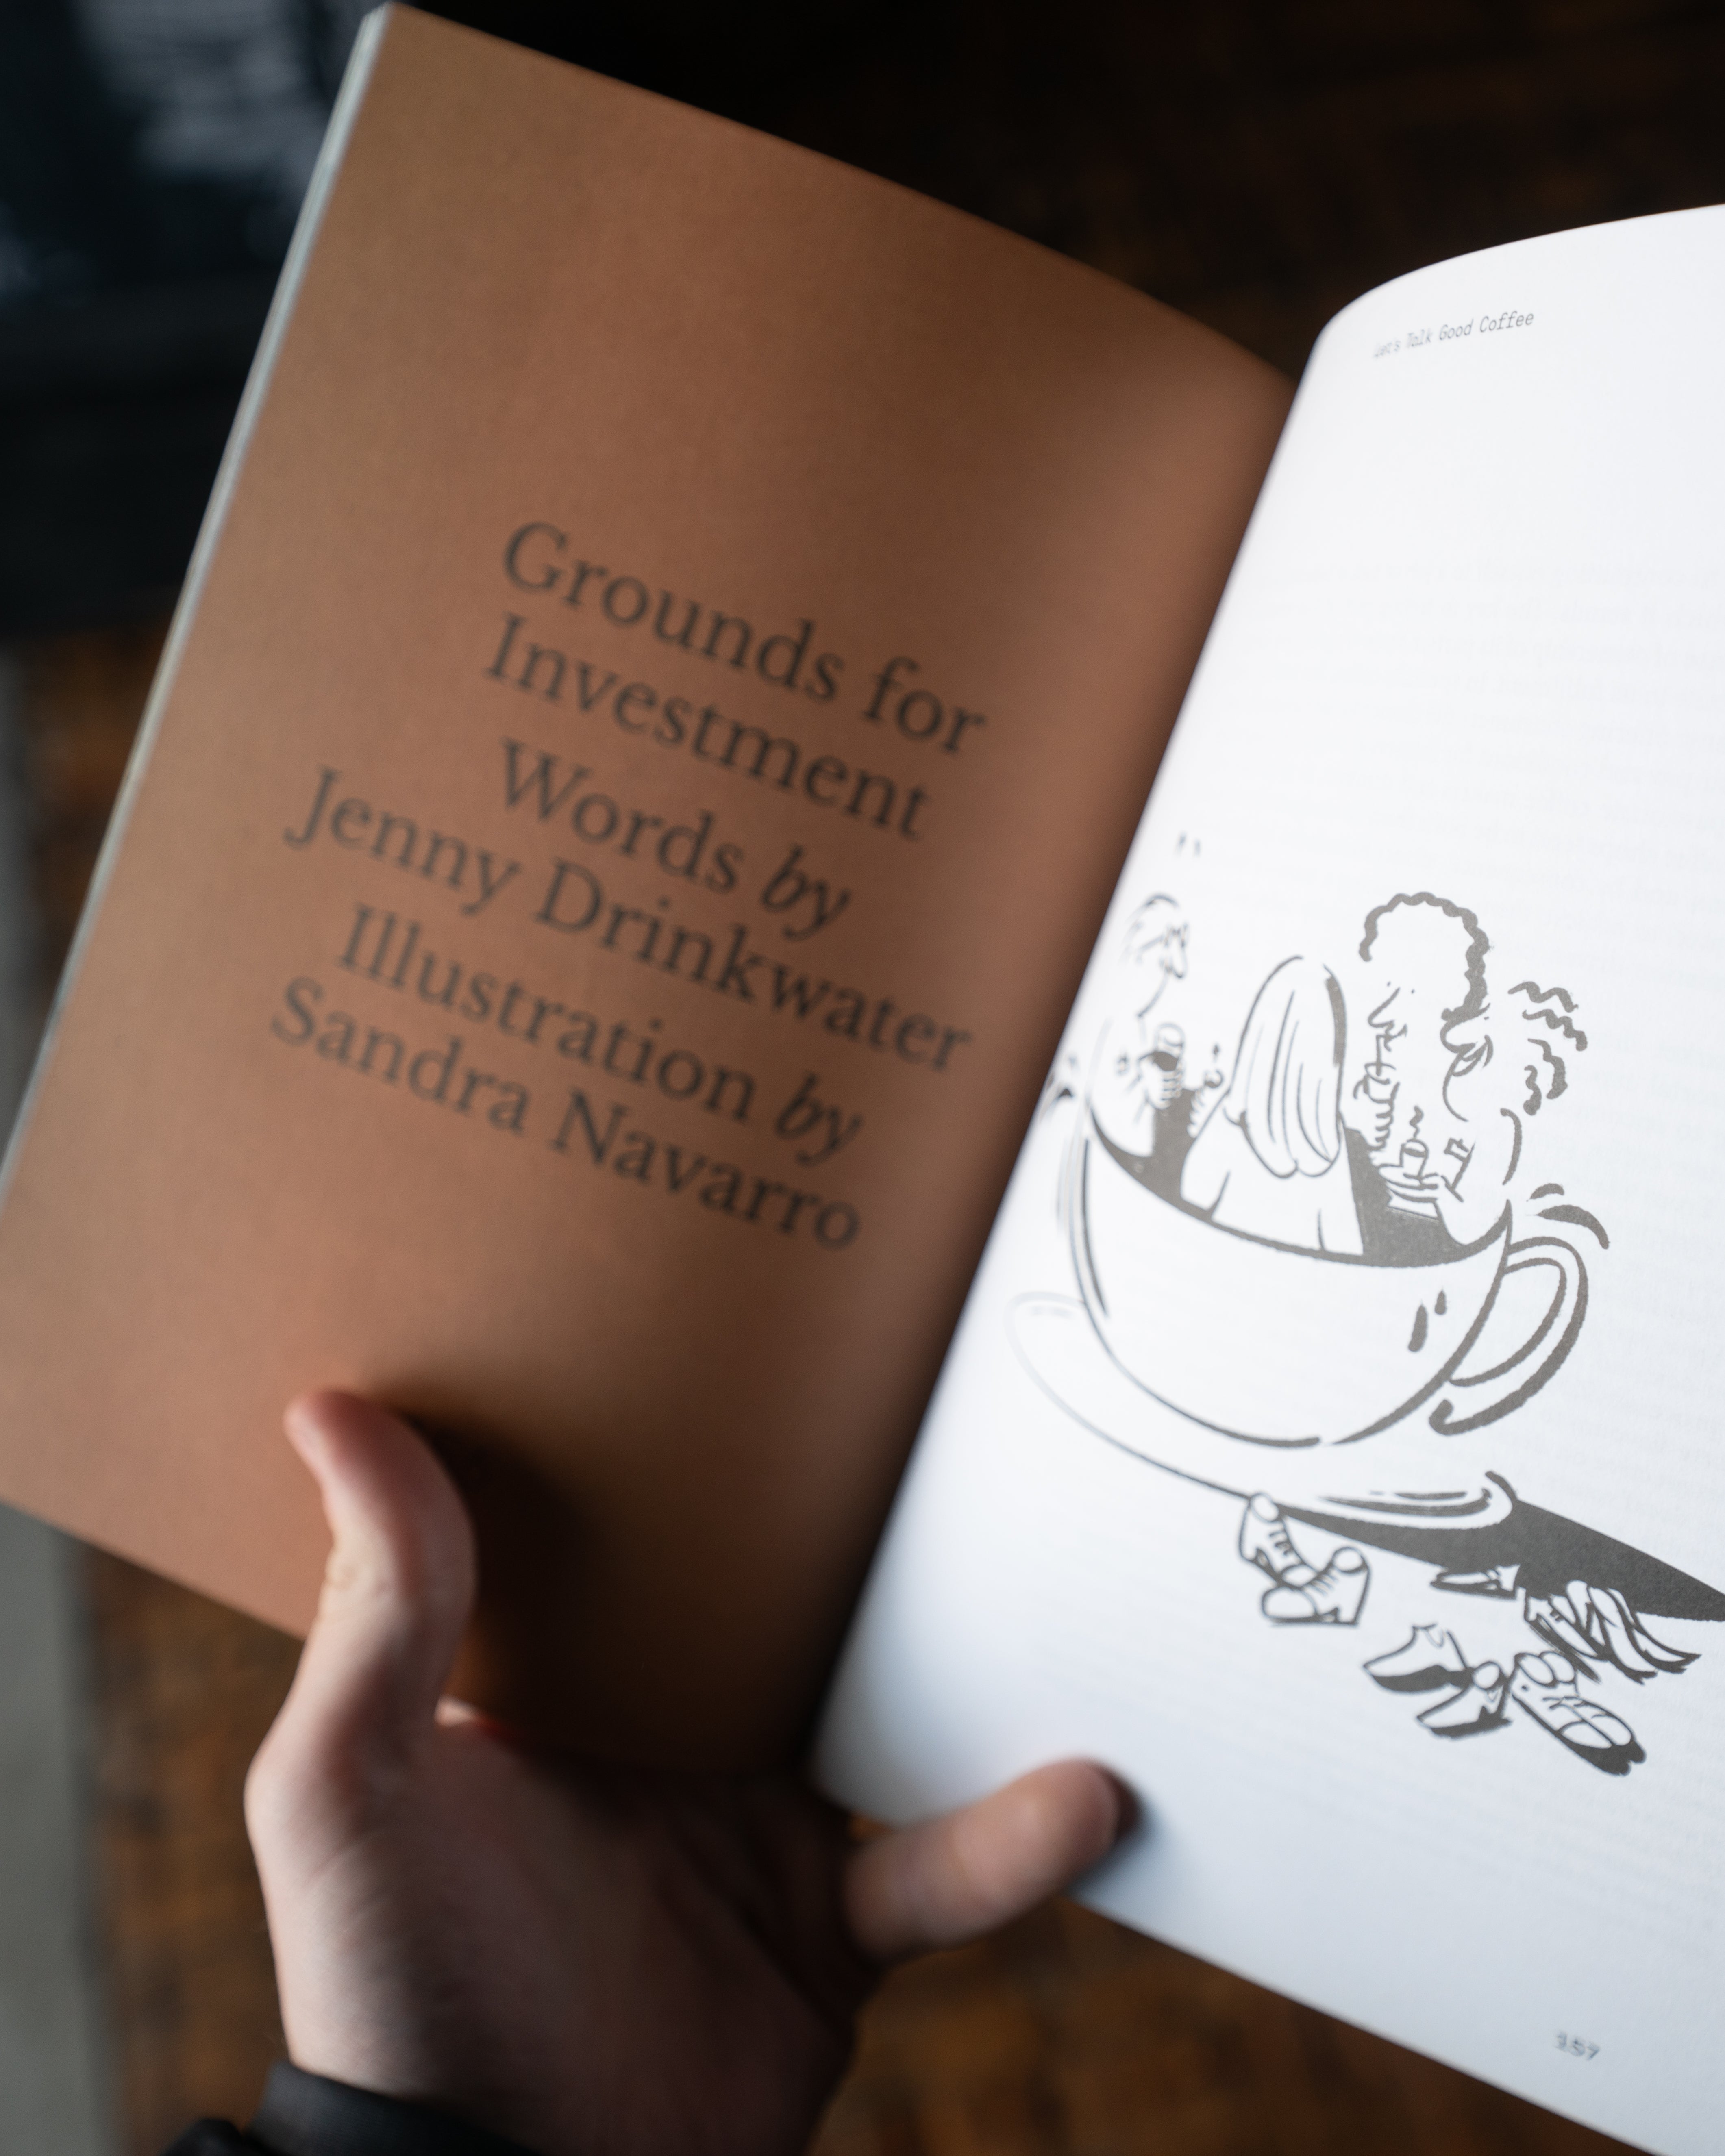 Grounds for
Investment
Words by
Jenny Drinkwater
Illustration by
Sandra Navarro
Let's Talk Good Coffee
157